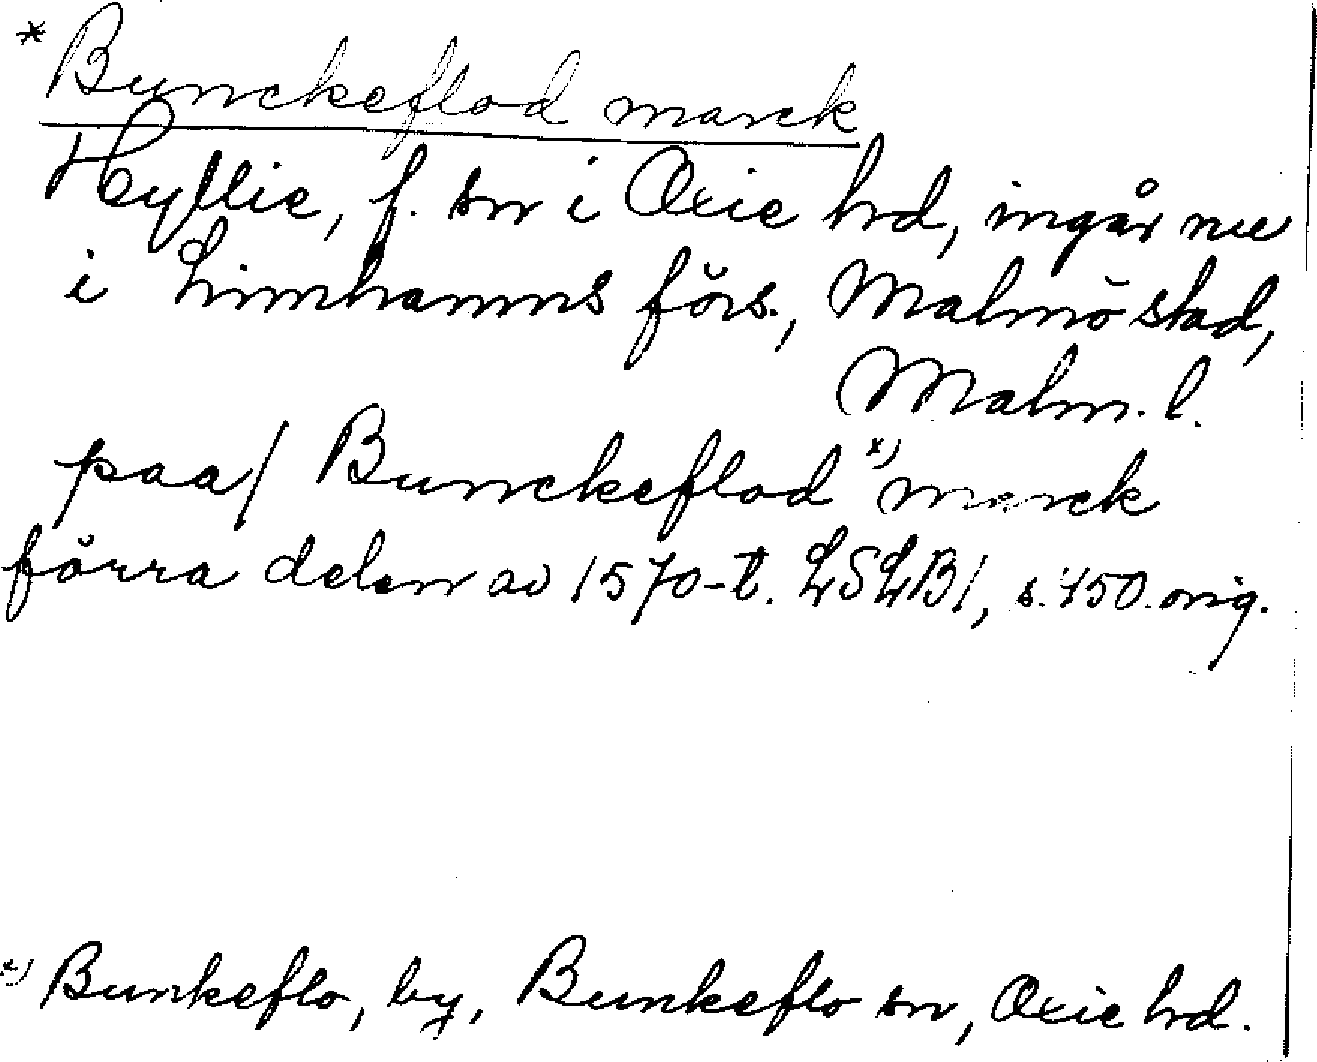 * Bunckeflod marck
Hyllie, f. sn i Oxie hd, ingår nu
i Limhamns förs., Malmö stad,
Malm. l.
paa/ Bunckeflod x) marck
förra delen av 1570-t. LSLB1, s. 450. orig.
x) Bunkeflo, by, Bunkeflo sn, Oxie hd.